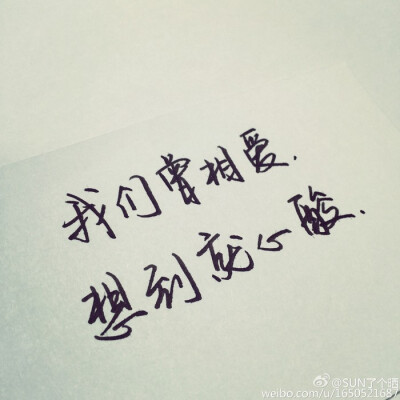 我们曾相爱.
想到就心酸.
@SUN了个晒
weibo.com/u/1650521687